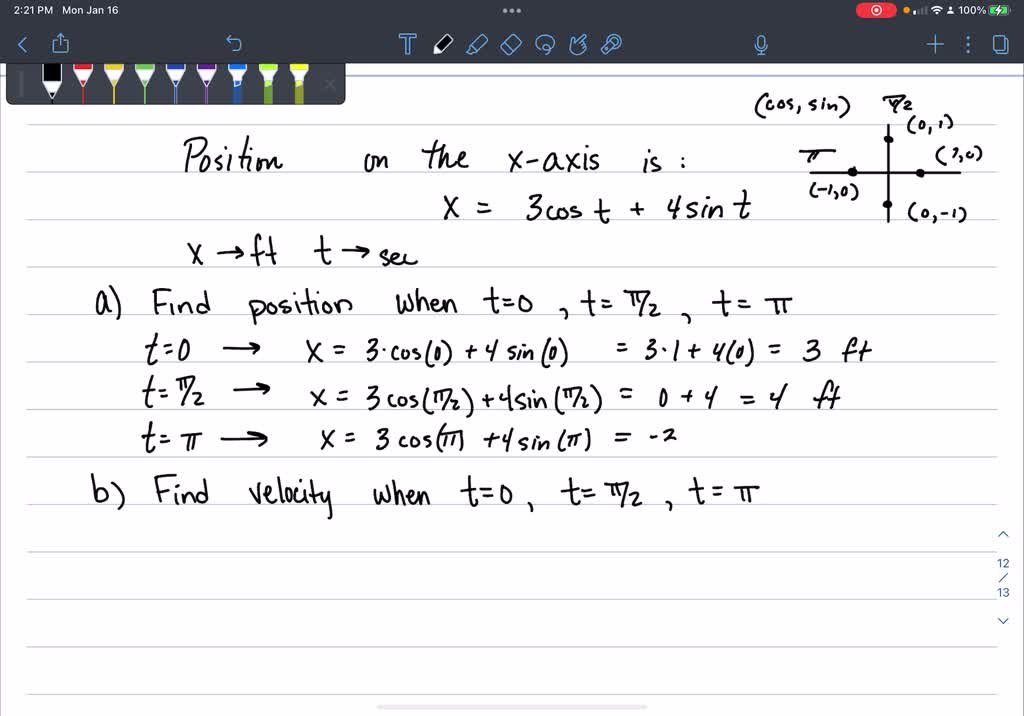 2:21 PM Mon Jan 16
100%
T
(cos, sin) π/2
(0, 1)
π (1, 0)
(-1, 0)
(0, -1)
Position on the x-axis is :
x = 3 cos t + 4 sin t
x → ft t → sec
a) Find position when t=0 , t= π/2 , t= π
t=0 → x = 3·cos(0) + 4 sin(0) = 3·1 + 4(0) = 3 ft
t= π/2 → x = 3 cos(π/2) + 4 sin(π/2) = 0 + 4 = 4 ft
t= π → x = 3 cos(π) + 4 sin(π) = -2
b) Find velocity when t=0 , t= π/2 , t= π
12
/
13